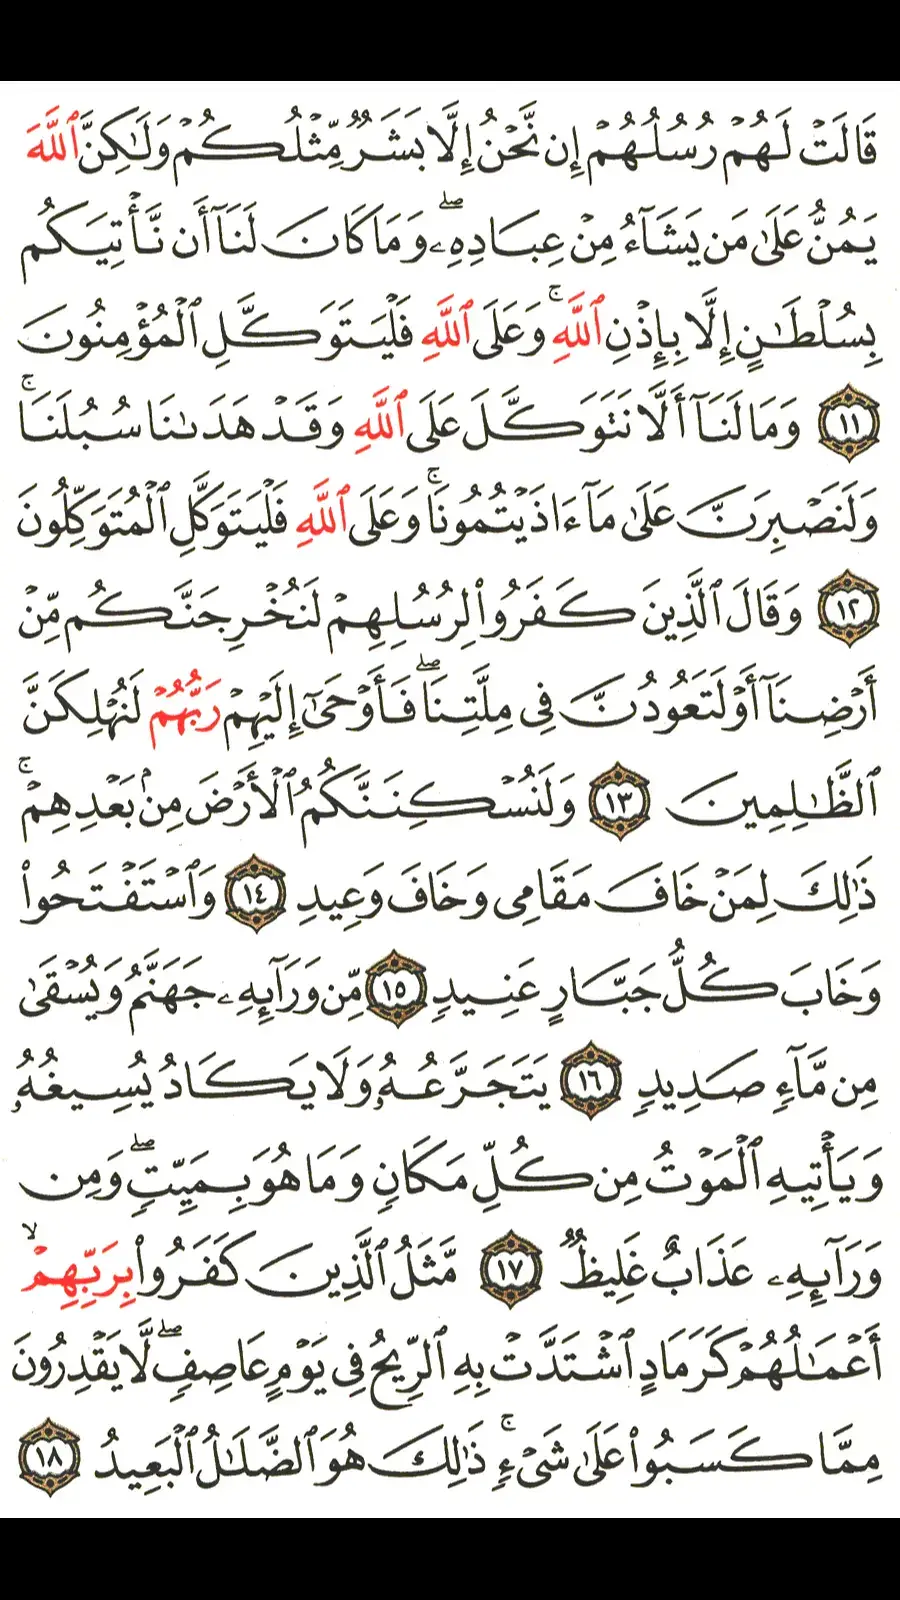 قَالَتْ لَهُمْ رُسُلُهُمْ إِن نَّحْنُ إِلَّا بَشَرٌ مِّثْلُكُمْ وَلَٰكِنَّ ٱللَّهَ
يَمُنُّ عَلَىٰ مَن يَشَآءُ مِنْ عِبَادِهِۦ ۖ وَمَا كَانَ لَنَآ أَن نَّأْتِيَكُم
بِسُلْطَٰنٍ إِلَّا بِإِذْنِ ٱللَّهِ ۚ وَعَلَى ٱللَّهِ فَلْيَتَوَكَّلِ ٱلْمُؤْمِنُونَ
١١ وَمَا لَنَآ أَلَّا نَتَوَكَّلَ عَلَى ٱللَّهِ وَقَدْ هَدَىٰنَا سُبُلَنَا ۚ
وَلَنَصْبِرَنَّ عَلَىٰ مَآ ءَاذَيْتُمُونَا ۚ وَعَلَى ٱللَّهِ فَلْيَتَوَكَّلِ ٱلْمُتَوَكِّلُونَ
١٢ وَقَالَ ٱلَّذِينَ كَفَرُوا۟ لِرُسُلِهِمْ لَنُخْرِجَنَّكُم مِّنْ
أَرْضِنَآ أَوْ لَتَعُودُنَّ فِى مِلَّتِنَا ۖ فَأَوْحَىٰٓ إِلَيْهِمْ رَبُّهُمْ لَنُهْلِكَنَّ
ٱلظَّٰلِمِينَ ١٣ وَلَنُسْكِنَنَّكُمُ ٱلْأَرْضَ مِنۢ بَعْدِهِمْ ۚ
ذَٰلِكَ لِمَنْ خَافَ مَقَامِى وَخَافَ وَعِيدِ ١٤ وَٱسْتَفْتَحُوا۟
وَخَابَ كُلُّ جَبَّارٍ عَنِيدٍ ١٥ مِّن وَرَآئِهِۦ جَهَنَّمُ وَيُسْقَىٰ
مِن مَّآءٍ صَدِيدٍ ١٦ يَتَجَرَّعُهُۥ وَلَا يَكَادُ يُسِيغُهُۥ
وَيَأْتِيهِ ٱلْمَوْتُ مِن كُلِّ مَكَانٍ وَمَا هُوَ بِمَيِّتٍ ۖ وَمِن
وَرَآئِهِۦ عَذَابٌ غَلِيظٌ ١٧ مَّثَلُ ٱلَّذِينَ كَفَرُوا۟ بِرَبِّهِمْ ۙ
أَعْمَٰلُهُمْ كَرَمَادٍ ٱشْتَدَّتْ بِهِ ٱلرِّيحُ فِى يَوْمٍ عَاصِفٍ ۖ لَّا يَقْدِرُونَ
مِمَّا كَسَبُوا۟ عَلَىٰ شَىْءٍ ۚ ذَٰلِكَ هُوَ ٱلضَّلَٰلُ ٱلْبَعِيدُ ١٨